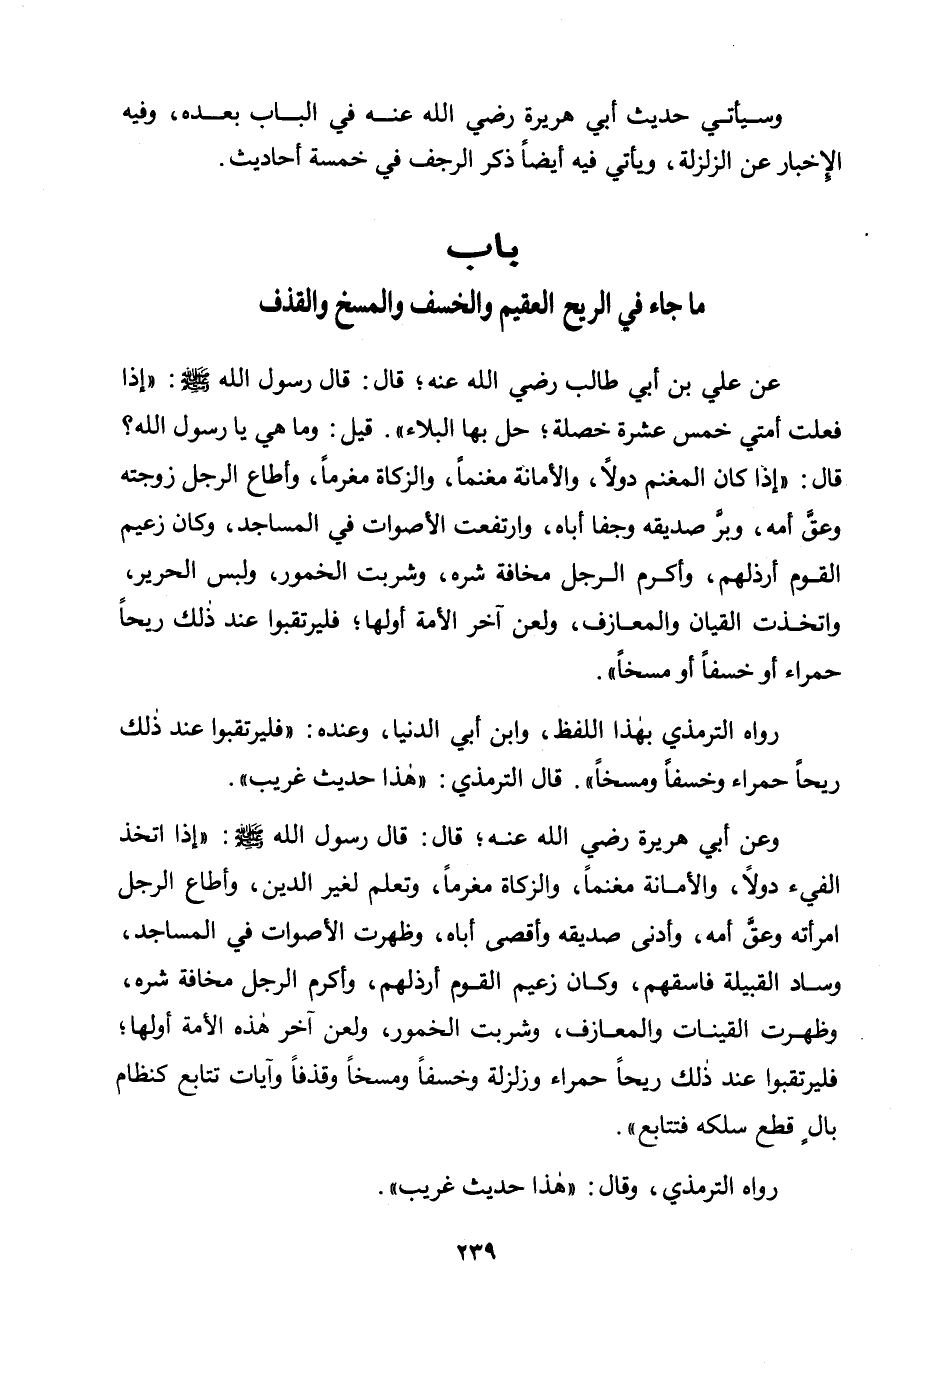 وسيأتي حديث أبي هريرة رضي الله عنه في الباب بعده، وفيه
الإخبار عن الزلزلة، ويأتي فيه أيضاً ذكر الرجف في خمسة أحاديث.
باب
ما جاء في الريح العقيم والخسف والمسخ والقذف
عن علي بن أبي طالب رضي الله عنه؛ قال: قال رسول الله ﷺ: «إذا
فعلت أمتي خمس عشرة خصلة؛ حل بها البلاء». قيل: وما هي يا رسول الله؟
قال: «إذا كان المغنم دولاً، والأمانة مغنماً، والزكاة مغرماً، وأطاع الرجل زوجته
وعقَّ أمه، وبرَّ صديقه وجفا أباه، وارتفعت الأصوات في المساجد، وكان زعيم
القوم أرذلهم، وأكرم الرجل مخافة شره، وشربت الخمور، ولبس الحرير،
واتخذت القيان والمعازف، ولعن آخر الأمة أولها؛ فليرتقبوا عند ذٰلك ريحاً
حمراء أو خسفاً أو مسخاً».
رواه الترمذي بهٰذا اللفظ، وابن أبي الدنيا، وعنده: «فليرتقبوا عند ذٰلك
ريحاً حمراء وخسفاً ومسخاً». قال الترمذي: «هٰذا حديث غريب».
وعن أبي هريرة رضي الله عنه؛ قال: قال رسول الله ﷺ: «إذا اتخذ
الفيء دولاً، والأمانة مغنماً، والزكاة مغرماً، وتعلم لغير الدين، وأطاع الرجل
امرأته وعقَّ أمه، وأدنى صديقه وأقصى أباه، وظهرت الأصوات في المساجد،
وساد القبيلة فاسقهم، وكان زعيم القوم أرذلهم، وأكرم الرجل مخافة شره،
وظهرت القينات والمعازف، وشربت الخمور، ولعن آخر هٰذه الأمة أولها؛
فليرتقبوا عند ذٰلك ريحاً حمراء وزلزلة وخسفاً ومسخاً وقذفاً وآيات تتابع كنظام
بالٍ قطع سلكه فتتابع».
رواه الترمذي، وقال: «هٰذا حديث غريب».
٢٣٩